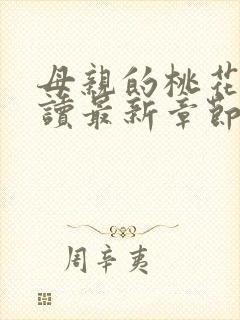 母親的桃花
讀最新章節
周辛夷